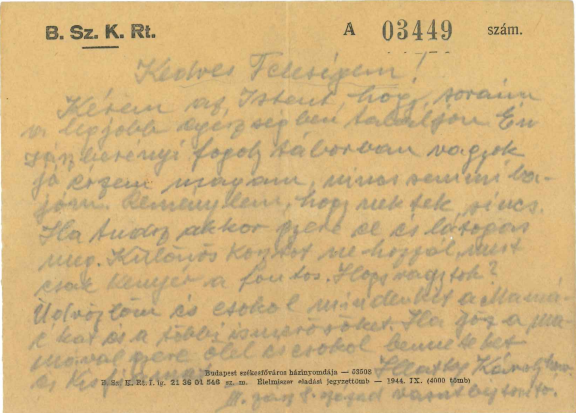 B. Sz. K. Rt. A 03449 szám.
Kedves Feleségem!
Kérem az Istent, hogy soraim
a legjobb egészségben találjon Én
jászberényi fogoly táborban vagyok
jó érzem magam, nincs semmi ba-
jom. Reménylem, hogy nektek sincs.
Ha tudsz akkor gyere el és látogas
meg. Különös kosztot ne hozzál, mert
csak kenyér a fontos. Hogy vagytok?
Üdvözlöm és csokol mindenkit a Mamá-
kat és a többi ismerősöket. Ha jösz a Ma-
mával gyere ölel és csokol benneteket
és Kisfiamat
Budapest székesfőváros házinyomdája — 03508
B. Sz. K. Rt. I. ig. 21 36 01 546 sz. m. Élelmiszer eladási jegyzettömb — 1944. IX. (4000 tömb)
Károly
III. zászl. 8. század